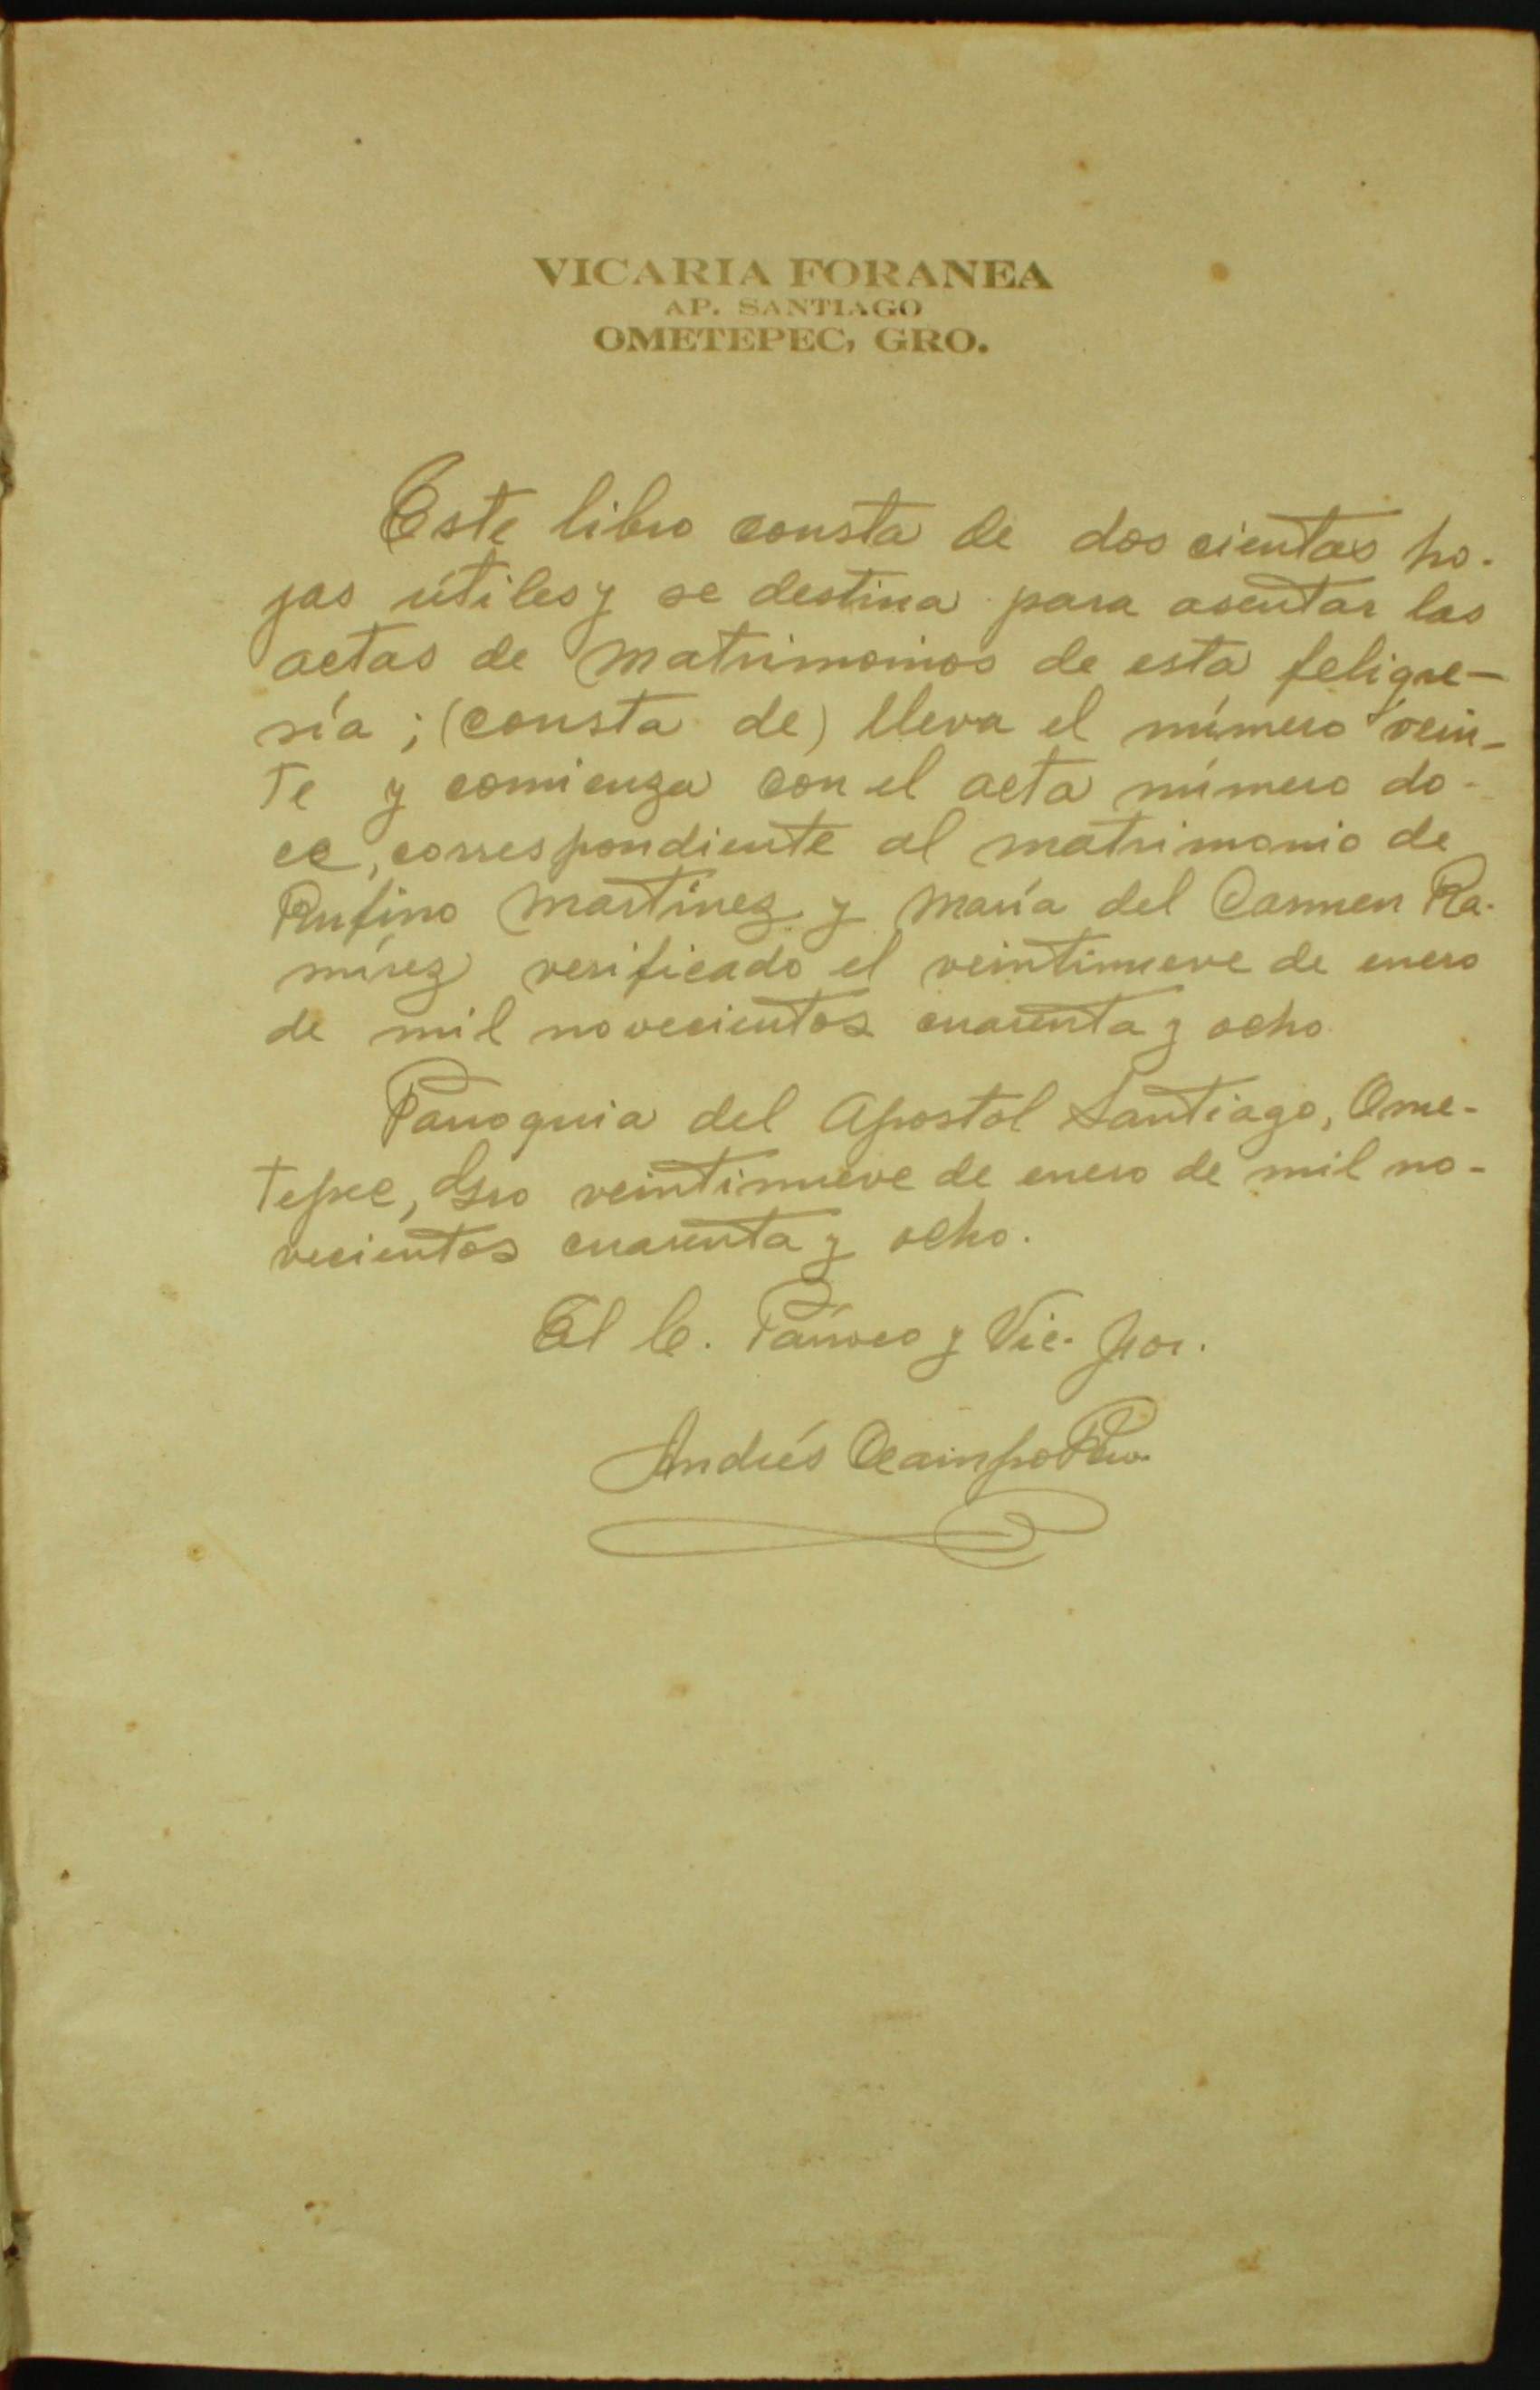 VICARIA FORANEA
AP. SANTIAGO
OMETEPEC, GRO.
Este libro consta de dos cientas ho-
jas útiles y se destina para asentar las
actas de Matrimonios de esta feligre-
sía; (consta de) lleva el número vein-
te y comienza con el acta número do-
ce, correspondiente al matrimonio de
Rufino Martínez y María del Carmen Ra-
mírez verificado el veintinueve de enero
de mil novecientos cuarenta y ocho.
Parroquia del Apostol Santiago, Ome-
tepec, Gro veintinueve de enero de mil no-
vecientos cuarenta y ocho.
El C. Párroco y Vic. For.
Andrés Ocampo Pbro.